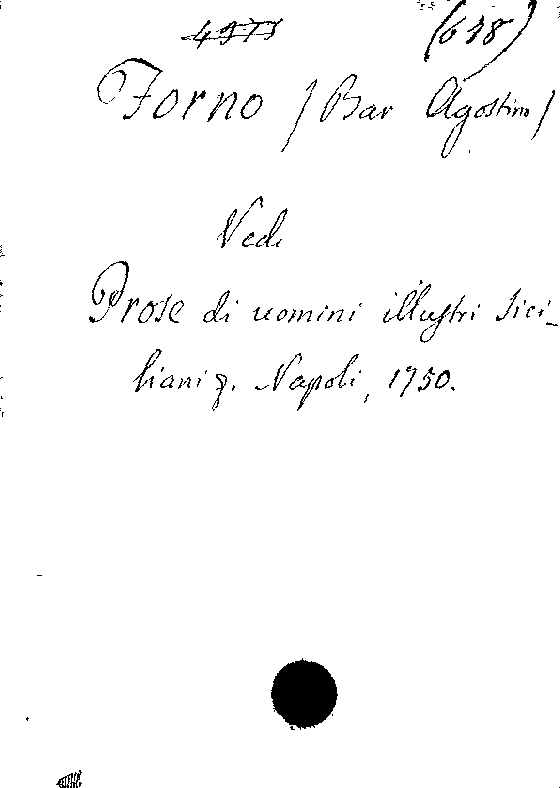 (638)
Forno / Bar Agostino /
Vedi
Prose di uomini illustri Sici-
liani &. Napoli, 1750.